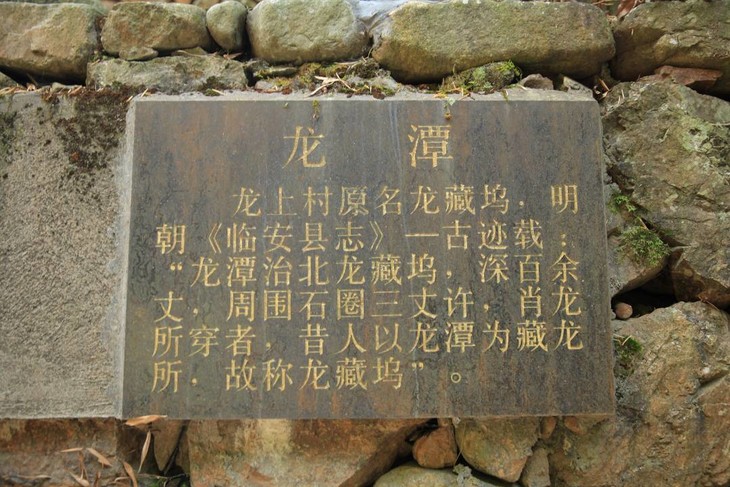 龙潭
龙上村原名龙藏坞，明
朝《临安县志》一古迹载：
“龙潭治北龙藏坞，深百余
丈，周围石圈三丈许，肖龙
所穿者，昔人以龙潭为藏龙
所，故称龙藏坞”。